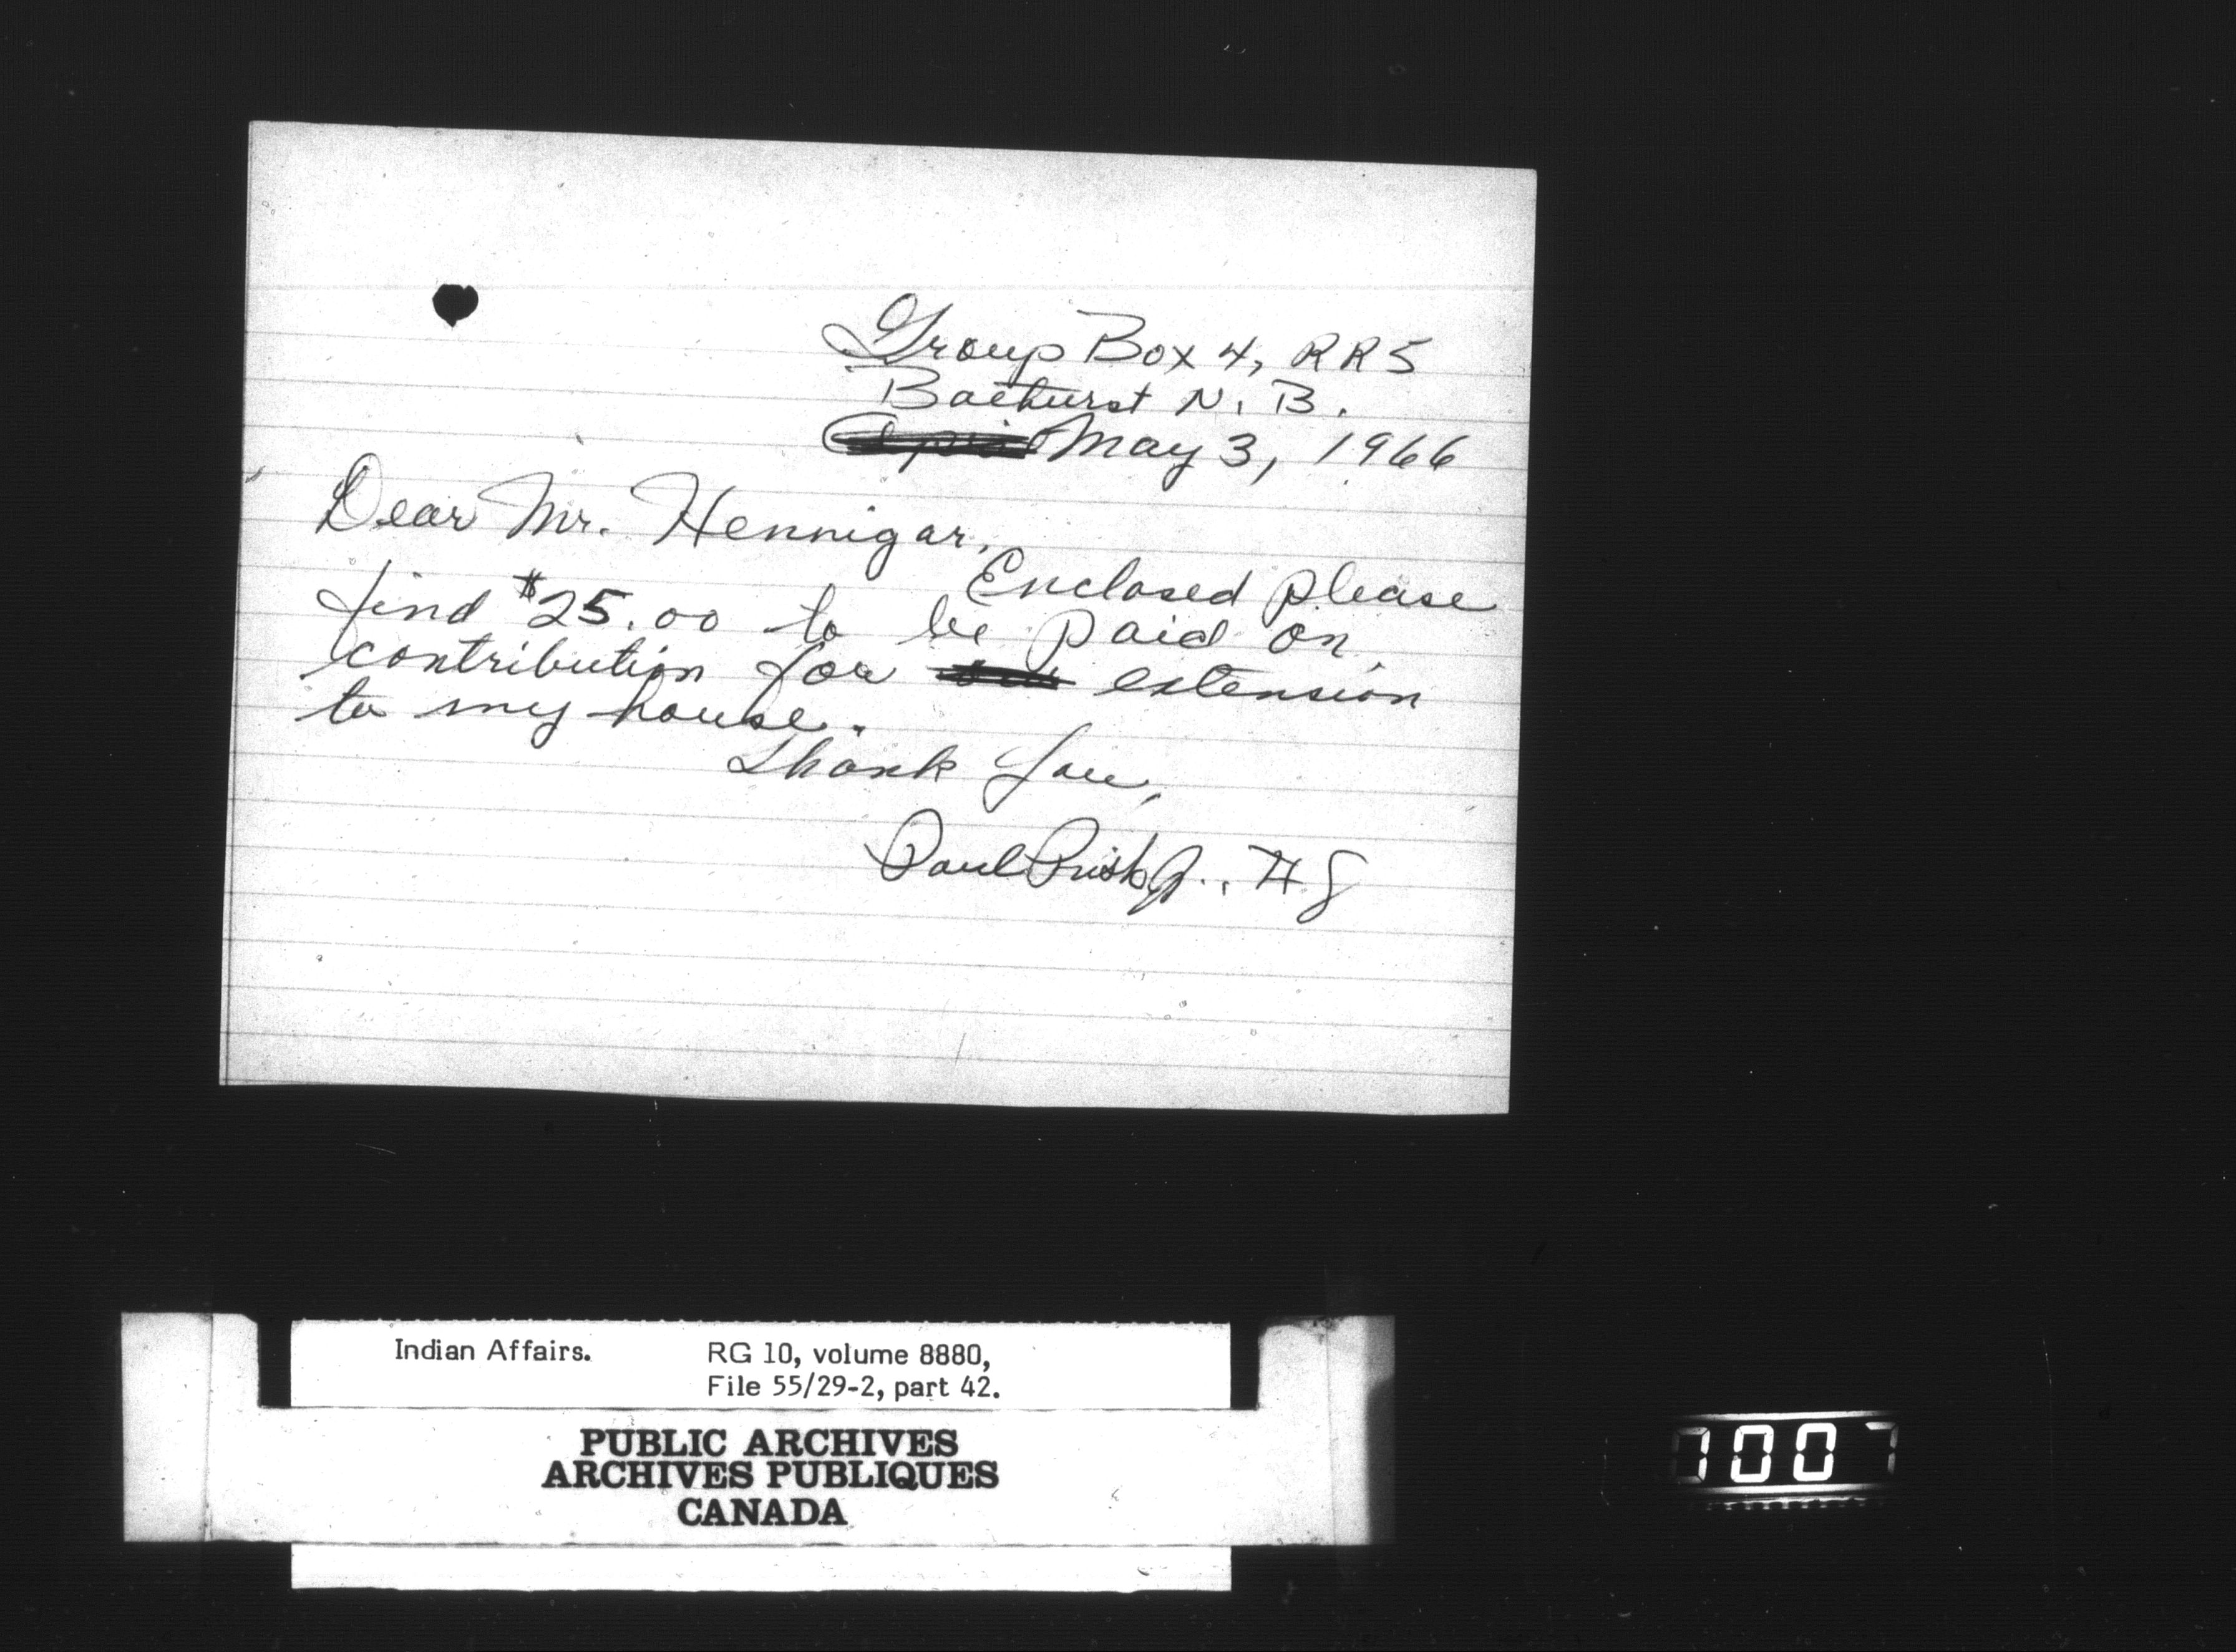 Group Box 4, RR5
Bathurst N. B.
May 3, 1966
Dear Mr. Hennigar,
Enclosed please
find $25.00 to be paid on
contribution for extension
to my house.
Thank You,
Paul
Indian Affairs. RG 10, volume 8880,
File 55/29-2, part 42.
PUBLIC ARCHIVES
ARCHIVES PUBLIQUES
CANADA